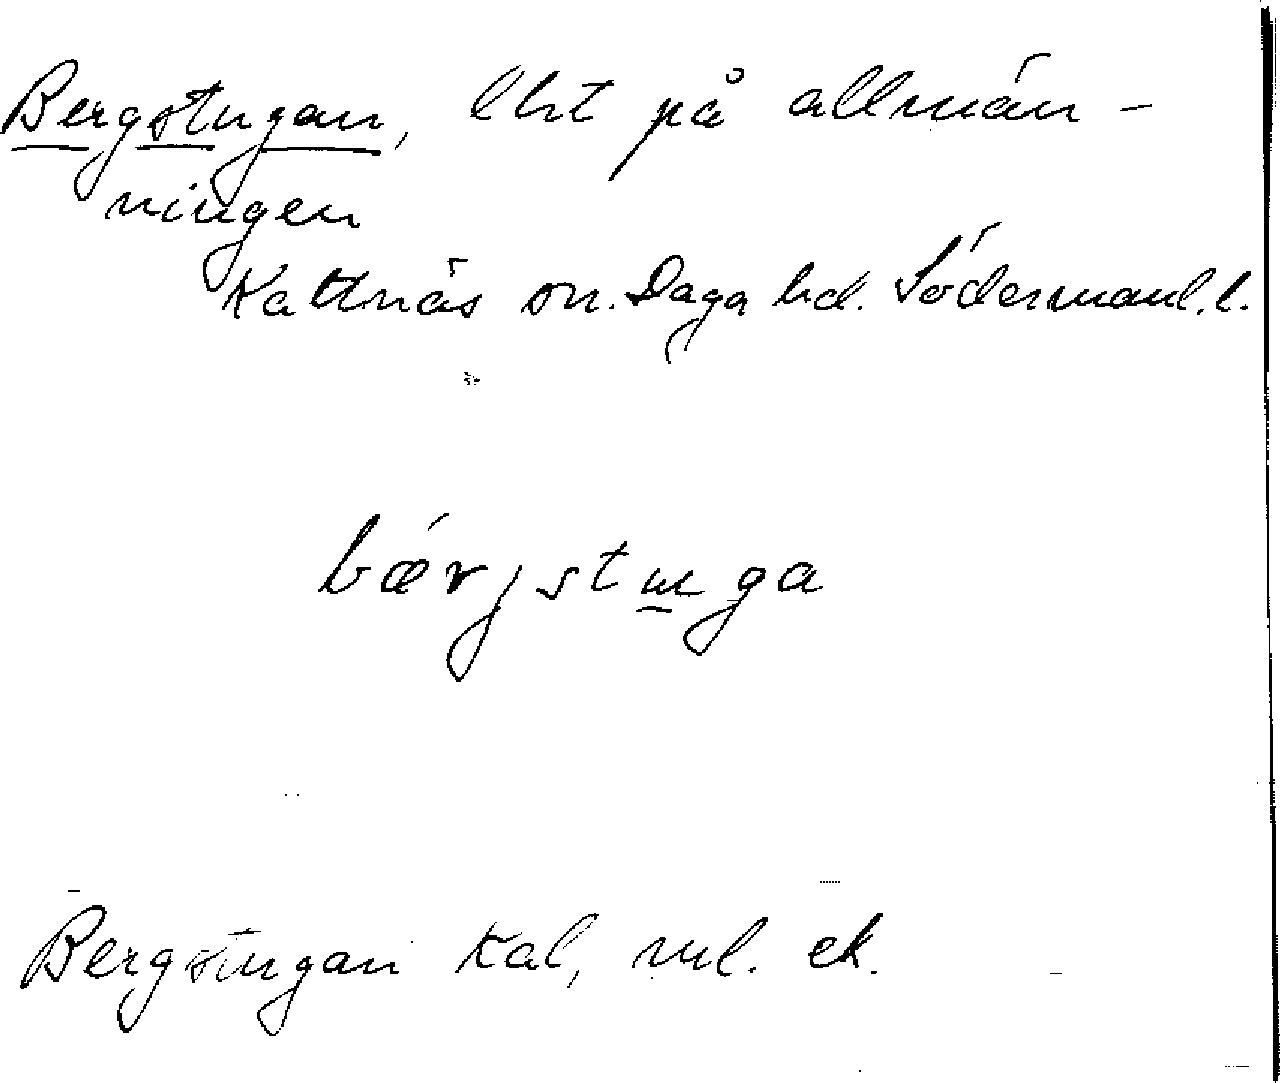 Bergstugan, lht på allmän-
ningen
Kattnäs sn. Daga hd. Södermanl. l.
bærjstuga
Bergstugan Kal, ek.